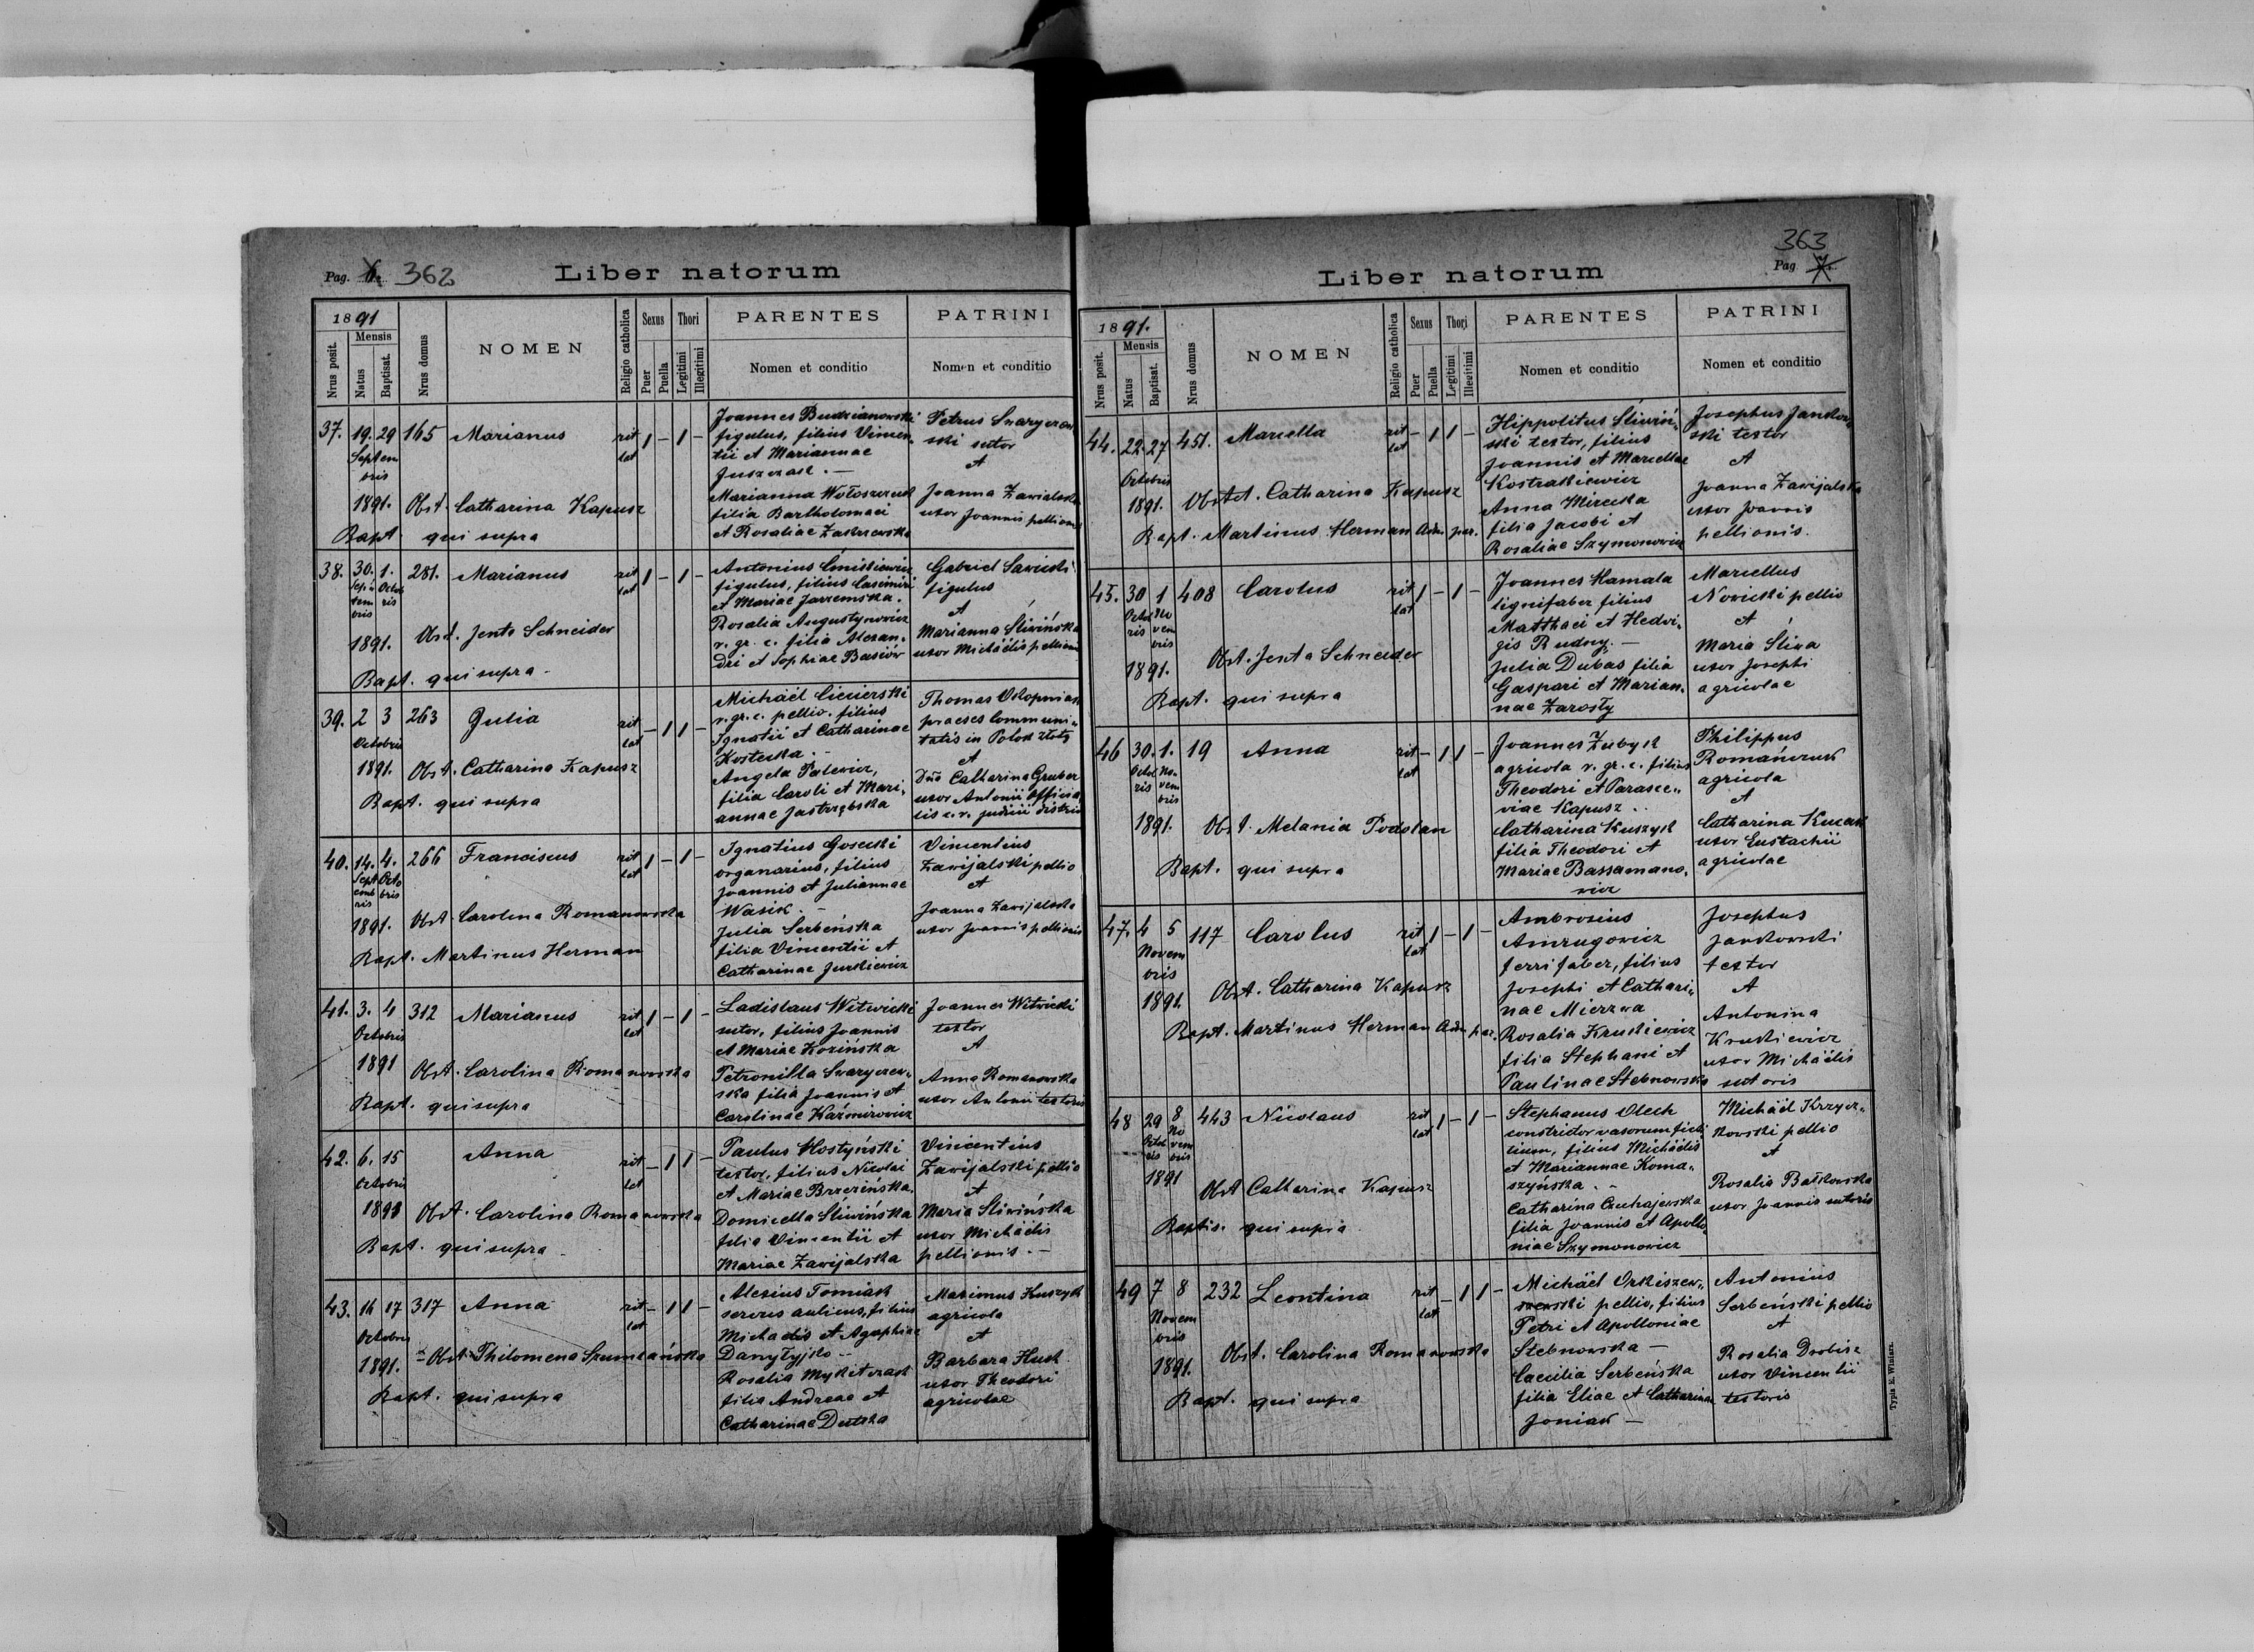 Pag. 6. 362
Liber natorum
1891
Mensis
Nrus posit.
Natus
Baptisat.
Nrus domus
NOMEN
Religio catholica
Sexus
Puer
Puella
Thori
Legitimi
Illegitimi
PARENTES
Nomen et conditio
PATRINI
Nomen et conditio
37. 19. 29 165 Marianus rit 1 - 1 -
Septem lat
bris
1891. Obst. Catharina Kapusz
Bapt. qui supra
Joannes Budzianowski
figulus, filius Vincen-
tii et Mariannae
Juszczak. -
Marianna Wołoszczuk
filia Bartholomaei
et Rosaliae Zakrzewska
Petrus
ski sutor
et
Joanna
uxor Joannis pellionis
38. 30. 1. 281. Marianus rit 1 - 1 -
Sep Octob lat
tem ris
bris
1891. Obst. Jenta Schneider
Bapt. qui supra -
Antonius
figulus, filius Casimiri
et Mariae Jarzemska.
Rosalia Augustynowicz
r. gr. c. filia Alexan-
dri et Sophiae
Gabriel Sawicki
figulus
et
Marianna Śliwińska
uxor Michäelis pellionis
39. 2 3 263 Julia rit - 1 1 -
Octobris lat
1891. Obst. Catharina Kapusz
Bapt. qui supra
Michäel
r. gr. c. pellio. filius
Ignatii et Catharinae
Kostecka. -
Angela
filia Caroli et Mari-
annae Jastrzębska
Thomas
praeses Communi-
tatis in Potok złoty
et
Dna Catharina Gruber
uxor Antonii officia
lis c. r. judicii
40. 14. 4. 266 Franciscus rit 1 - 1 -
Sept Octo lat
emb bris
ris
1891. Obst. Carolina Romanowska
Bapt. Martinus Herman
Ignatius Gosecki
organarius, filius
Joannis et Juliannae
Wasik. -
Julia Serbeńska
filia Vincentii et
Catharinae Jurkiewicz
Vincentius
Zawijalski pellio
et
Joanna Zawijalska
uxor Joannis pellionis
41. 3. 4 312 Marianus rit 1 - 1 -
Octobris lat
1891 Obst. Carolina Romanowska
Bapt. qui supra
Ladislaus Witwicki
sutor, filius Joannis
et Mariae Kozińska
Petronilla
ska filia Joannis et
Carolinae Kaźmirowicz
Joannes Witwicki
textor
et
Anna Romanowska
uxor Antonii textoris
42. 6. 15 Anna rit - 1 1 -
Octobris lat
1891 Obst. Carolina Romanowska
Bapt. qui supra -
Paulus Hostyński
textor, filius Nicolai
et Mariae Brzezińska.
Domicella Śliwińska
filia Vincentii et
Mariae Zawijalska
Vincentius
Zawijalski pellio
et
Maria Sliwińska
uxor Michäelis
pellionis. -
43. 16 17 317 Anna rit - 1 1 -
Octobris lat
1891. Obst. Philomena
Bapt. qui supra
Alexius Tomiak
servus aulicus, filius
Michaelis et Agaphiae
Danyłyjko -
Rosalia Mykitczak
filia Andreae et
Catharinae Dutka
Maximus Kuszyk
agricola
et
Barbara Huck
uxor Theodori
agricolae
363
Pag 7.
Liber natorum
1891.
Mensis
Nrus posit.
Natus
Baptisat.
Nrus domus
NOMEN
Religio catholica
Sexus
Puer
Puella
Thori
Legitimi
Illegitimi
PARENTES
Nomen et conditio
PATRINI
Nomen et conditio
44. 22. 27 451. Marcella rit - 1 1 -
Octobris lat
1891. Obstet. Catharina Kapusz
Bapt. Martinus Herman Adm. par.
Hippolitus Śliwiń-
ski textor, filius
Joannis et Marcellae
Kostrakiewicz
Anna Mirecka
filia Jacobi et
Rosaliae Szymonowicz
Josephus Jankow-
ski textor
et
Joanna Zawijalska
uxor Joannis
pellionis.
45. 30 1 408 Carolus rit 1 - 1 -
Octob No lat
ris vem
bris
1891. Obst. Jenta Schneider
Bapt. qui supra
Joannes Hamala
lignifaber filius
Matthaei et Hedvi-
gis Rudny. -
Julia Dubas filia
Gaspari et Marian-
nae Zarosty
Marcellus
Nowicki pellio
et
Maria Śliwa
uxor Josephi
agricolae
46 30. 1. 19 Anna rit - 1 1 -
Octob No- lat
ris vem
bris
1891. Obst. Melania Podolan
Bapt. qui supra
Joannes Zubyk
agricola r. gr. c. filius
Theodori et Parasce-
viae Kapusz. .
Catharina Kuszyk
filia Theodori et
Mariae Bassamano-
wicz
Philippus
Romańczuk
agricola
et
Catharina
uxor Eustachii
agricolae
47. 4 5 117 Carolus rit 1 - 1 -
Novem lat
bris
1891. Obst. Catharina Kapusz
Bapt. Martinus Herman Adm par.
Ambrosius
Amzugowicz
ferrifaber, filius
Josephi et Cathari-
nae Mierzwa
Rosalia Kruckiewicz
filia Stephani et
Paulinae Stebnowska
Josephus
Jankowski
textor
et
Antonina
Kruckiewicz
uxor Michäelis
sutoris
48 29 8 443 Nicolaus rit 1 - 1 -
Octob No lat
ris vem
bris
1891 Obst Catharina Kapusz
Baptis. qui supra
Stephanus Olech
constrictor vasorum ficti
lium, filius Michäelis
et Mariannae Koma-
szyńska. -
Catharina
filia Joannis et Apollo
niae Szymonowicz
Michäel Krzyż-
kowski pellio
et
Rosalia
uxor Joannis sutoris
49 7 8 232 Leontina rit - 1 1 -
Novem lat
bris
1891. Obst. Carolina Romanowska
Bapt. qui supra
Michäel Orkiszew-
ski pellio, filius
Petri et Apolloniae
Stebnowska -
Caecilia Serbeńska
filia Eliae et Catharinae
Joniak -
Antonius
Serbeński pellio
et
Rosalia Drobisz
uxor Vincentii
textoris
Typis E. Winiarz.